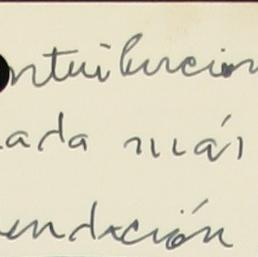 ontribucion
ada más
endación